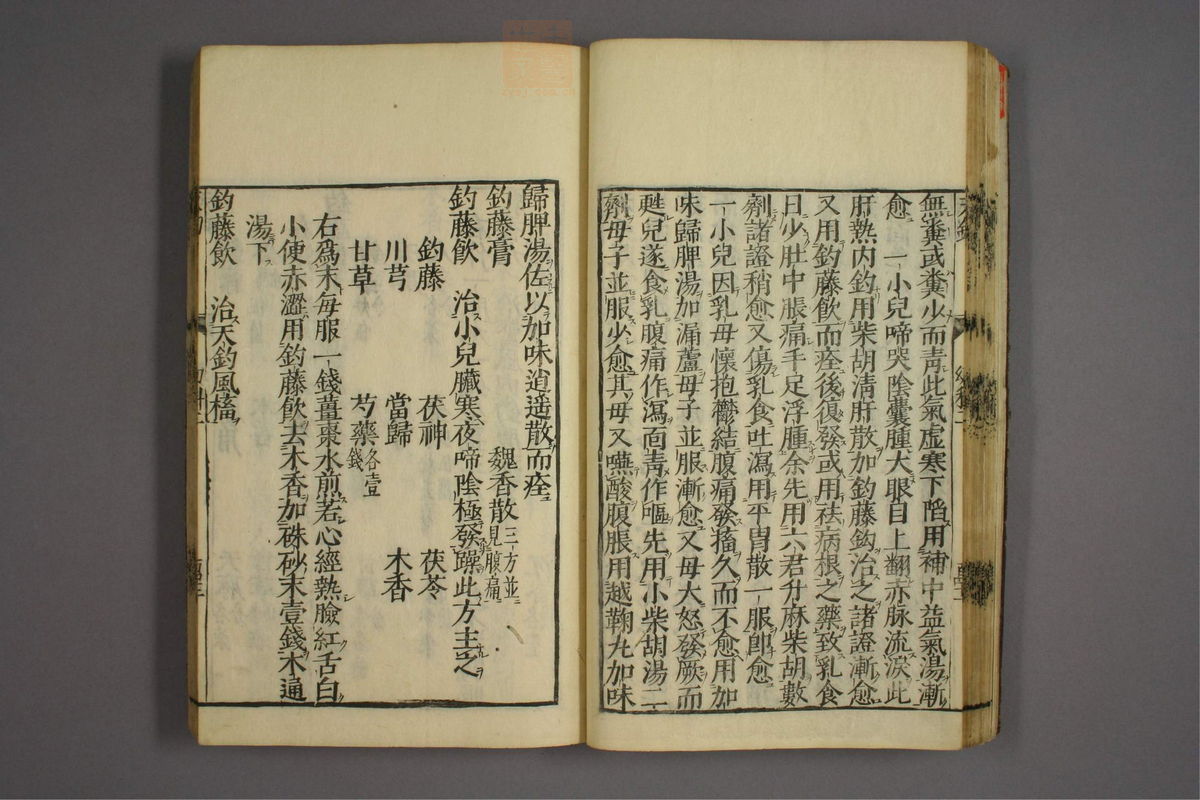 無糞或糞少而靑此氣虛寒下陷用補中益氣湯漸
愈一小兒啼哭陰囊腫大眼目上翻赤脉流淚此
肝熱内釣用柴胡淸肝散加釣藤鈎治之諸證漸愈
又用釣藤飮而痊後復發或用祛病根之藥致乳食
日少肚中脹痛手足浮腫余先用六君升麻柴胡數
劑諸證稍愈又傷乳食吐瀉用平胃散一服卽愈
一小兒因乳母懷抱鬱結腹痛發搐久而不愈用加
味歸脾湯加漏蘆母子並服漸愈又母大怒發厥而
甦兒遂食乳腹痛作瀉靣靑作嘔先用小柴胡湯二
劑母子並服少愈其母又嚥酸腹脹用越鞠丸加味
歸脾湯佐以加味逍遥散而痊
釣藤膏　魏香散三方並見腹痛
釣藤飮　治小兒臓寒夜啼陰極發躁此方主之
釣藤　茯神　茯苓
川芎　當歸　木香
甘草　芍藥各壹錢
右爲末每服一錢薑棗水煎若心經熱臉紅舌白
小便赤澀用釣藤飮去木香加硃砂末壹錢木通
湯下
釣藤飮　治天釣風搐